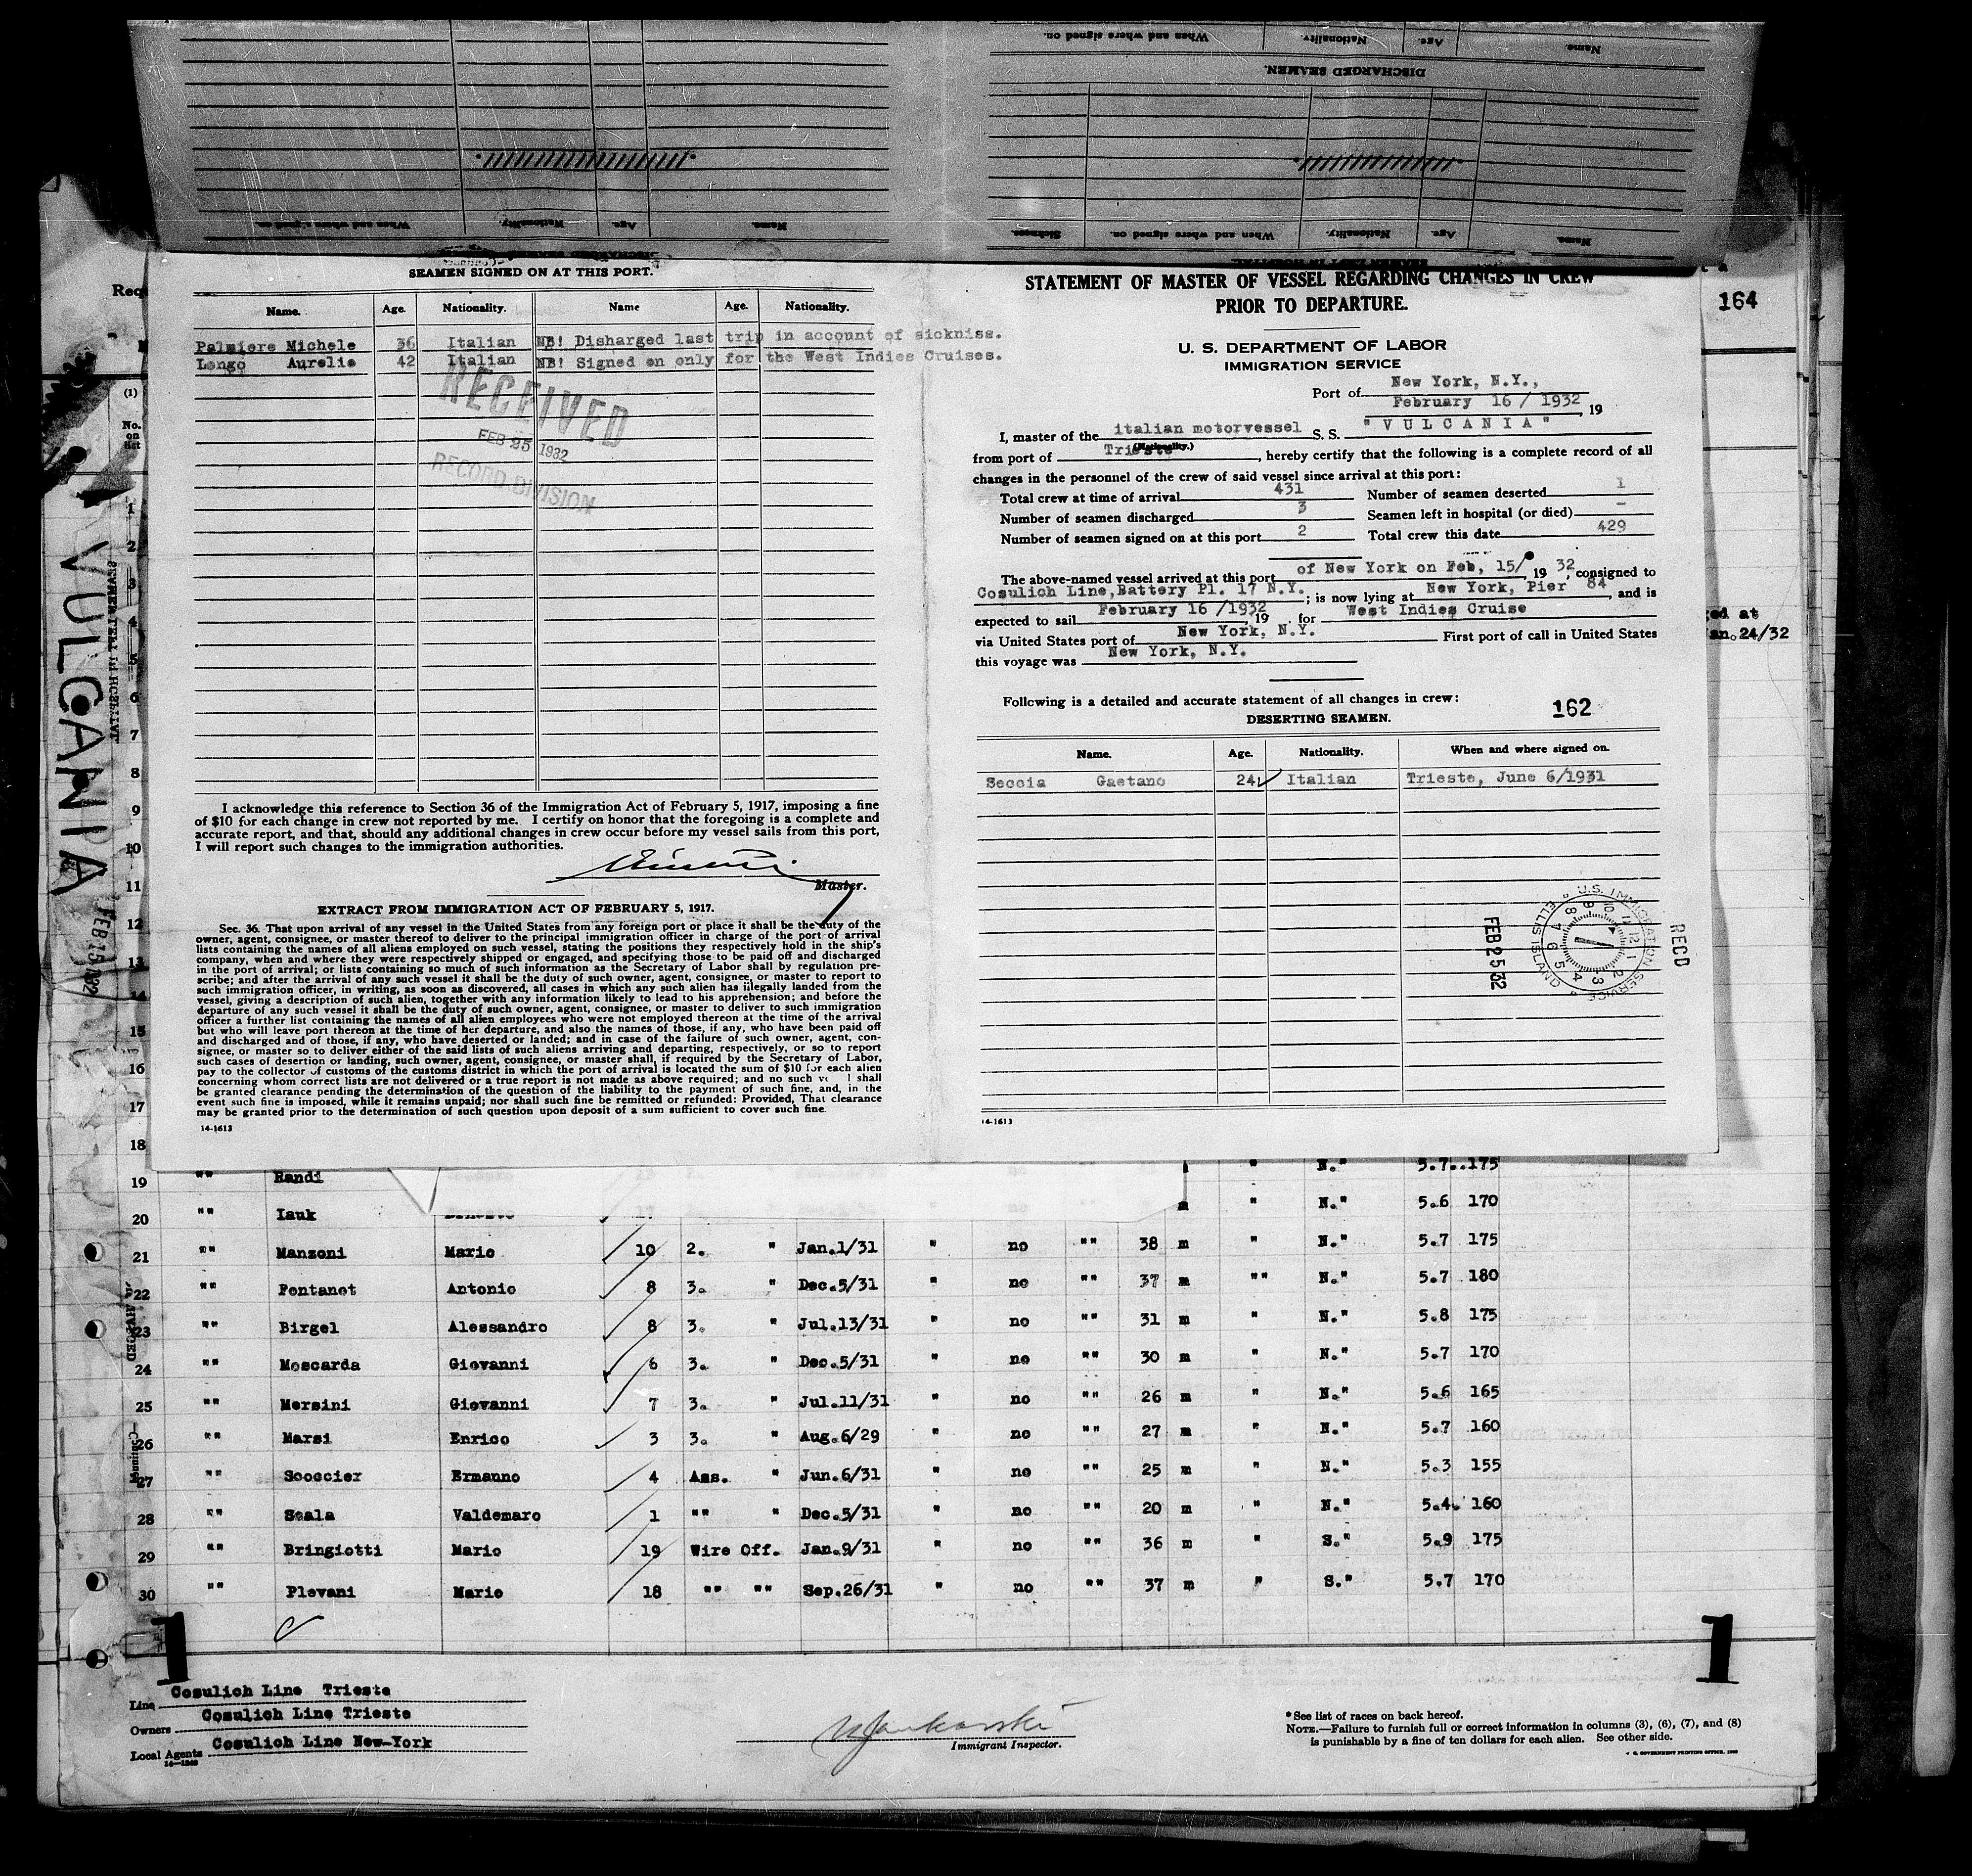 When and where signed on.
Nationality.
Age.
Name.
DISCHARGED SEAMEN.
When and where signed on.
Nationality.
Age.
Name.
Sickness.
When and where signed on
Nationality.
Age.
Name.
SEAMEN SIGNED ON AT THIS PORT.
Name. Age. Nationality. Name Age. Nationality.
Palmiere Michele 36 Italian NB! Disharged last trip in account of sickniss.
Longo Aurelio 42 Italian NB! Signed on only for the West Indies Cruises.
RECEIVED
FEB 25 1932
RECORD DIVISION
I acknowledge this reference to Section 36 of the Immigration Act of February 5, 1917, imposing a fine
of $10 for each change in crew not reported by me. I certify on honor that the foregoing is a complete and
accurate report, and that, should any additional changes in crew occur before my vessel sails from this port,
I will report such changes to the immigration authorities.
Master.
EXTRACT FROM IMMIGRATION ACT OF FEBRUARY 5, 1917.
Sec. 36. That upon arrival of any vessel in the United States from any foreign port or place it shall be the duty of the
owner, agent, consignee, or master thereof to deliver to the principal immigration officer in charge of the port of arrival
lists containing the names of all aliens employed on such vessel, stating the positions they respectively hold in the ship's
company, when and where they were respectively shipped or engaged, and specifying those to be paid off and discharged
in the port of arrival; or lists containing so much of such information as the Secretary of Labor shall by regulation pre-
scribe; and after the arrival of any such vessel it shall be the duty of such owner, agent, consignee, or master to report to
such immigration officer, in writing, as soon as discovered, all cases in which any such alien has illegally landed from the
vessel, giving a description of such alien, together with any information likely to lead to his apprehension; and before the
departure of any such vessel it shall be the duty of such owner, agent, consignee, or master to deliver to such immigration
officer a further list containing the names of all alien employees who were not employed thereon at the time of the arrival
but who will leave port thereon at the time of her departure, and also the names of those, if any, who have been paid off
and discharged and of those, if any, who have deserted or landed; and in case of the failure of such owner, agent, con-
signee, or master so to deliver either of the said lists of such aliens arriving and departing, respectively, or so to report
such cases of desertion or landing, such owner, agent, consignee, or master shall, if required by the Secretary of Labor,
pay to the collector of customs of the customs district in which the port of arrival is located the sum of $10 for each alien
concerning whom correct lists are not delivered or a true report is not made as above required; and no such shall
be granted clearance pending the determination of the question of the liability to the payment of such fine, and, in the
event such fine is imposed, while it remains unpaid; nor shall such fine be remitted or refunded: Provided, That clearance
may be granted prior to the determination of such question upon deposit of a sum sufficient to cover such fine.
14-1613
STATEMENT OF MASTER OF VESSEL REGARDING CHANGES IN CREW
PRIOR TO DEPARTURE.
U. S. DEPARTMENT OF LABOR
IMMIGRATION SERVICE
Port of New York, N.Y.,
February 16 / 1932, 19
I, master of the italian motorvessel S. S. "VULCANIA"
(Nationality.)
from port of Trieste, hereby certify that the following is a complete record of all
changes in the personnel of the crew of said vessel since arrival at this port:
Total crew at time of arrival 431 Number of seamen deserted 1
Number of seamen discharged 3 Seamen left in hospital (or died) -
Number of seamen signed on at this port 2 Total crew this date 429
The above-named vessel arrived at this port of New York on Feb, 15/ 19 32, consigned to
Cosulich Line, Battery Pl. 17 N.Y.; is now lying at New York, Pier 84, and is
expected to sail February 16 /1932, 19 for West Indies Cruise
via United States port of New York, N.Y. First port of call in United States
this voyage was New York, N.Y.
Following is a detailed and accurate statement of all changes in crew:
162
DESERTING SEAMEN.
Name. Age. Nationality. When and where signed on.
Seccia Gaetano 24 Italian Trieste, June 6/1931
REC'D
FEB 25 32
U.S. IMMIGRATION SERVICE
ELLIS ISLAND
14-1613
164
ged at
an.24/32
(1)
No. on list
VULCANIA
FEB 15 1932
1
2
3
4
5
6
7
8
9
10
11
12
13
14
15
16
17
18
19 "" Randi N." 5.7. 175
20 "" Iauk m " N." 5.6 170
21 "" Manzoni Mario 10 2. " Jan.1/31 " no "" 38 m " N." 5.7 175
22 "" Pontanot Antonio 8 3. " Dec.5/31 " no "" 37 m "" N." 5.7 180
23 "" Birgel Alessandro 8 3. " Jul.13/31 " no "" 31 m " N." 5.8 175
24 "" Moscarda Giovanni 6 3. " Dec.5/31 " no "" 30 m " N." 5.7 170
25 "" Mersini Giovanni 7 3. " Jul.11/31 " no "" 26 m " N." 5.6 165
26 "" Marsi Enrico 3 3. " Aug.6/29 " no "" 27 m " N." 5.7 160
27 "" Scoccier Ermanno 4 Ass. " Jun.6/31 " no "" 25 m " N." 5.3 155
28 "" Scala Valdemaro 1 "" " Dec.5/31 " no "" 20 m " N." 5.4. 160
29 "" Bringiotti Mario 19 Wire Off. Jan.9/31 " no "" 36 m " S." 5.9 175
30 "" Plevani Mario 18 "" "" Sep.26/31 " no "" 37 m " S." 5.7 170
1
1
Line Cosulich Line Trieste
Owners Cosulich Line Trieste
Local Agents Cosulich Line New-York
Immigrant Inspector.
* See list of races on back hereof.
NOTE.—Failure to furnish full or correct information in columns (3), (6), (7), and (8)
is punishable by a fine of ten dollars for each alien. See other side.